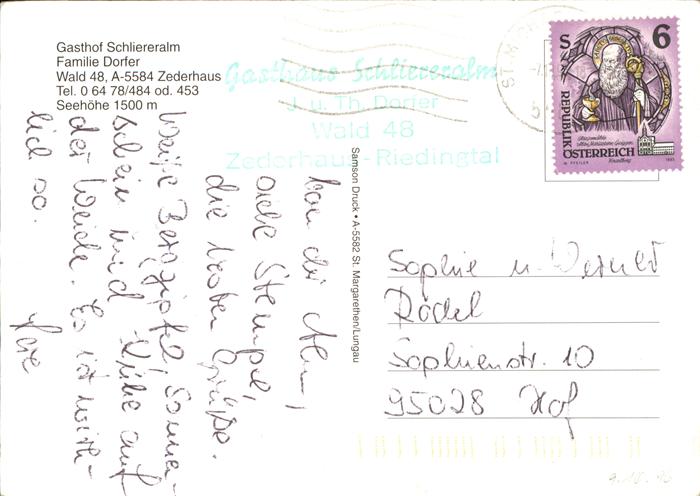 Gasthof Schliereralm
Familie Dorfer
Wald 48, A-5584 Zederhaus
Tel. 0 64 78/484 od. 453
Seehöhe 1500 m
Gasthaus Schliereralm
J. u. Th. Dorfer
Wald 48
Zederhaus-Riedingtal
S 6
REPUBLIK
ÖSTERREICH
Samson Druck • A-5582 St. Margarethen/Lungau
Von der Alm,
siehe Stempel,
die besten Grüße.
Weiße Bergzipfel, Sonne-
schein und Kühe auf
der Weide. Es ist wirk-
lich so.
Sophie u. Werner
Rödel
Sophienstr. 10
95028 Hof